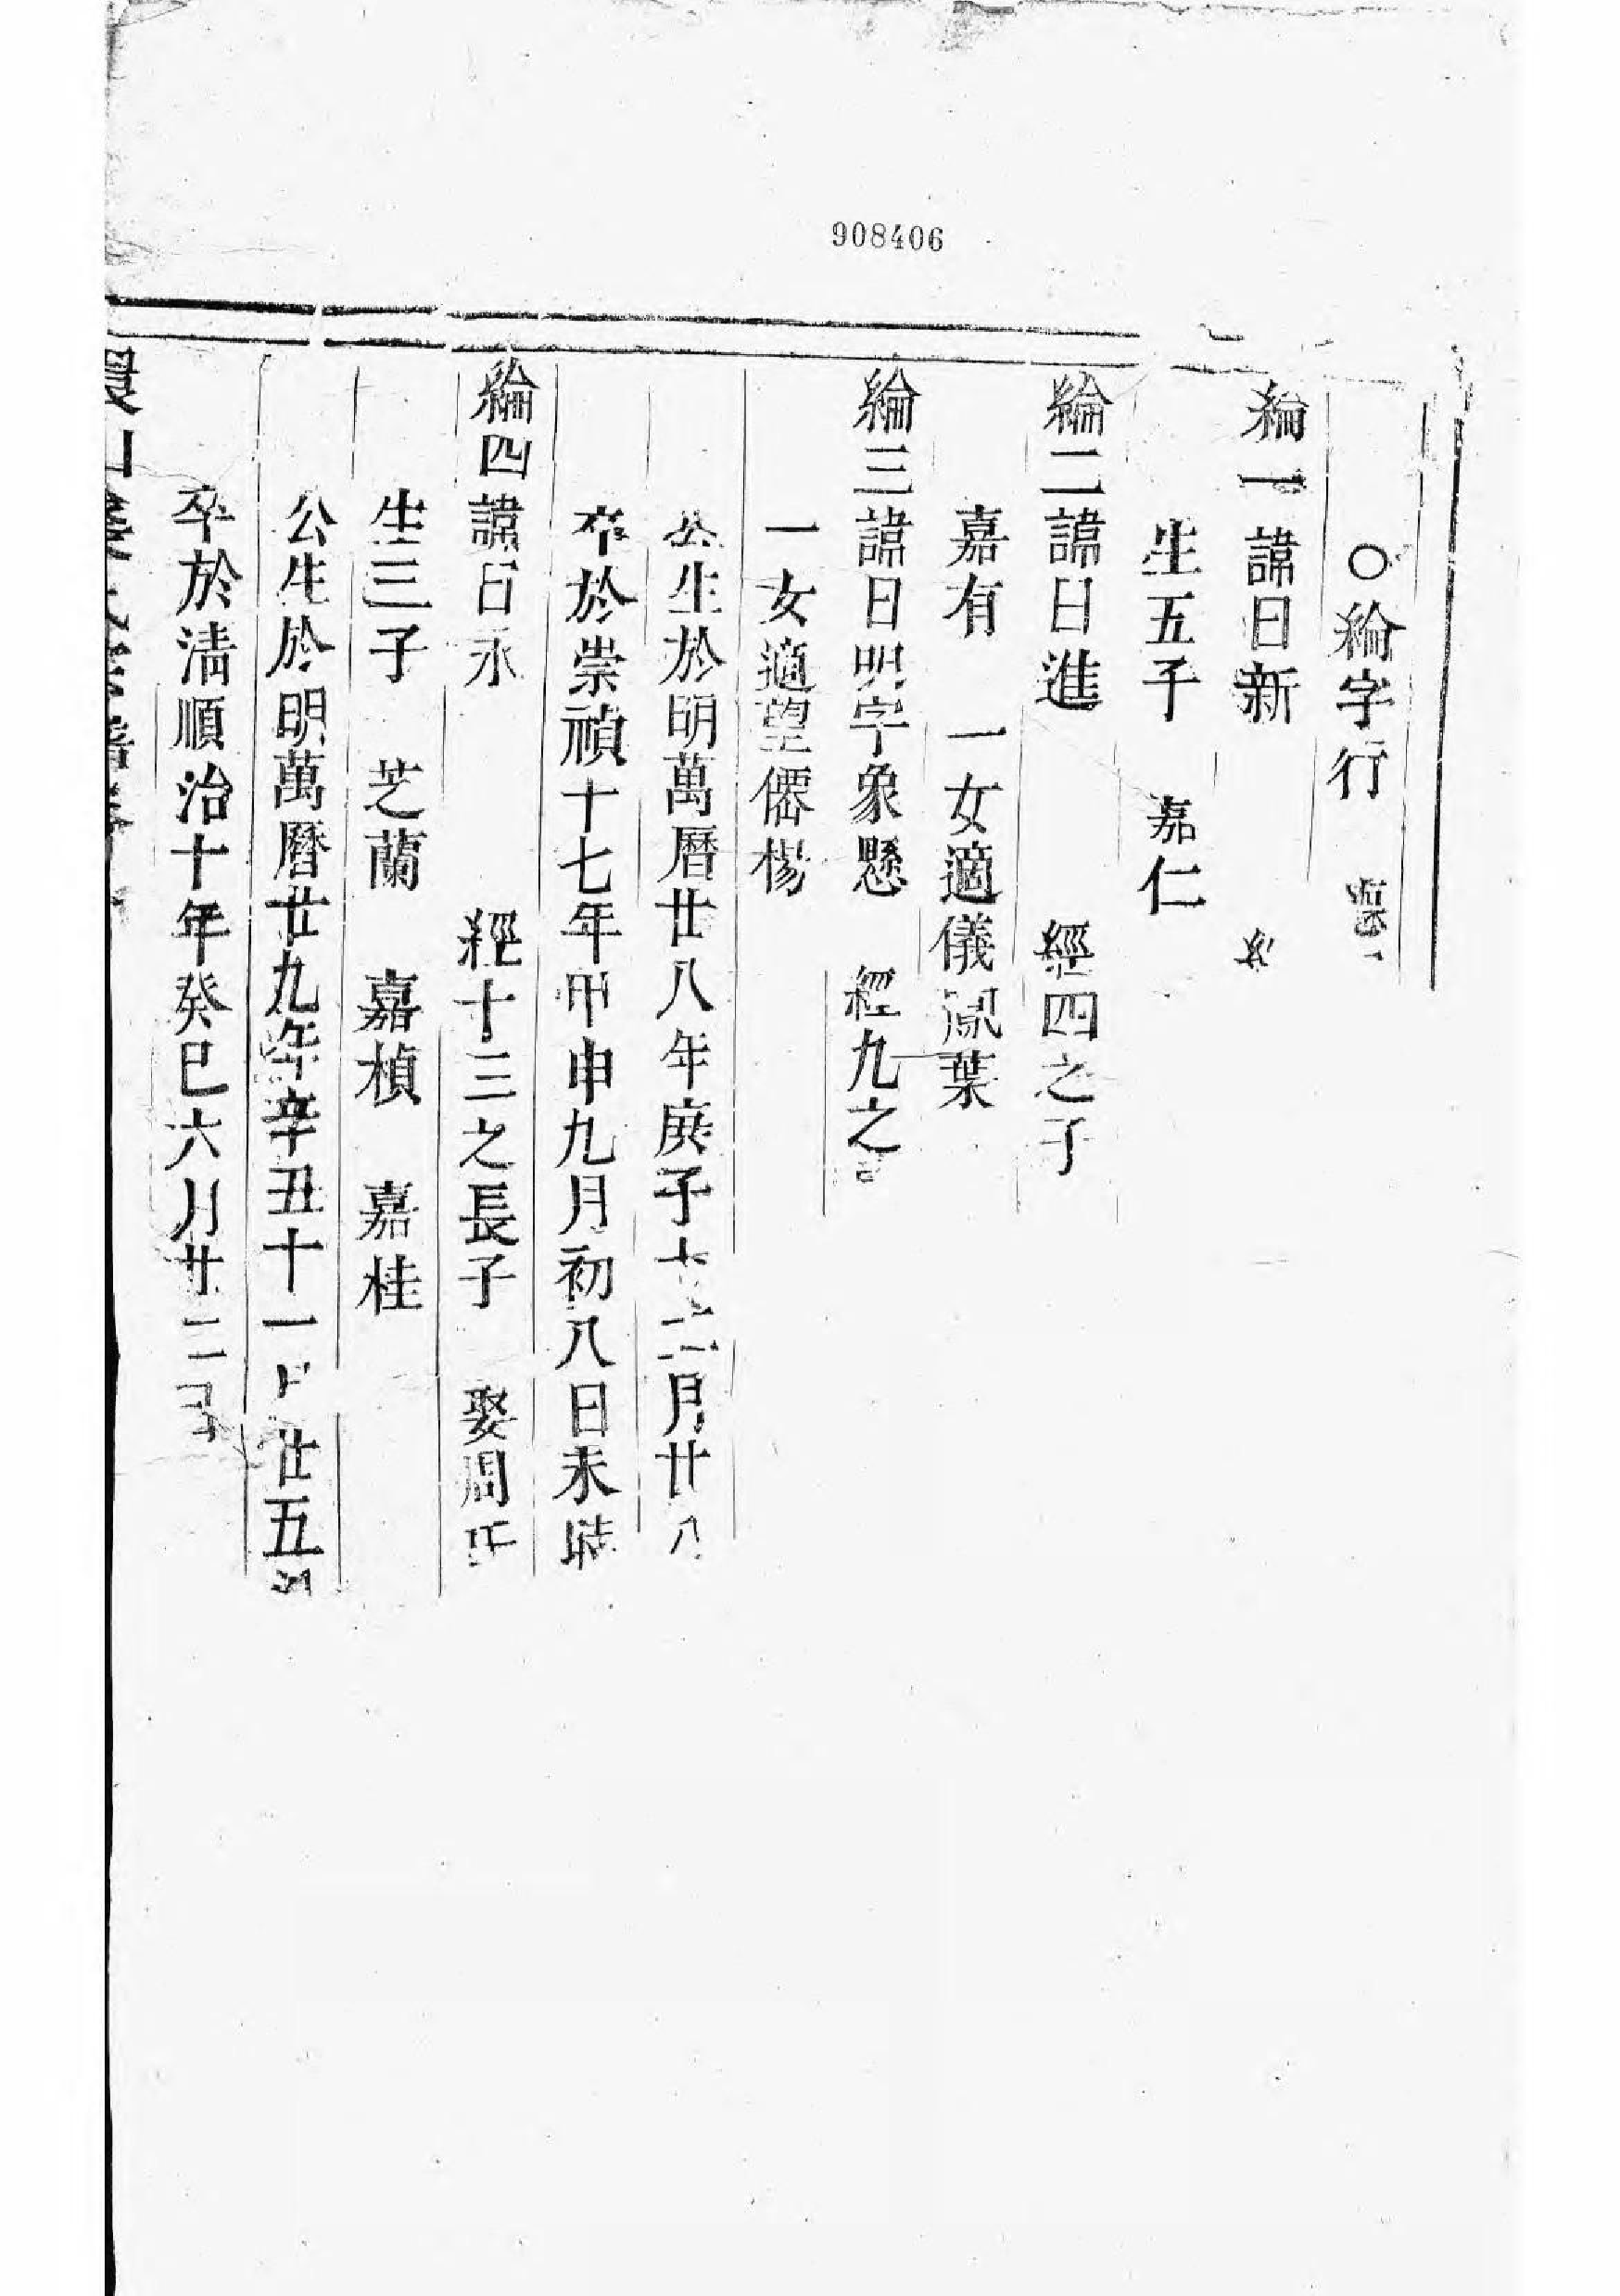 908406
○綸字行
綸一諱日新
生五子 嘉仁
綸二諱日進 經四之子
嘉有 一女適儀鳳葉
綸三諱日明字象懸 經九之
一女適望僊楊
公生於明萬曆廿八年庚子十二月廿八
卒於崇禎十七年甲申九月初八日未時
綸四諱日永 經十三之長子 娶周氏
生三子 芝蘭 嘉楨 嘉桂
公生於明萬曆廿九年辛丑十一月廿五
卒於清順治十年癸巳六月廿二